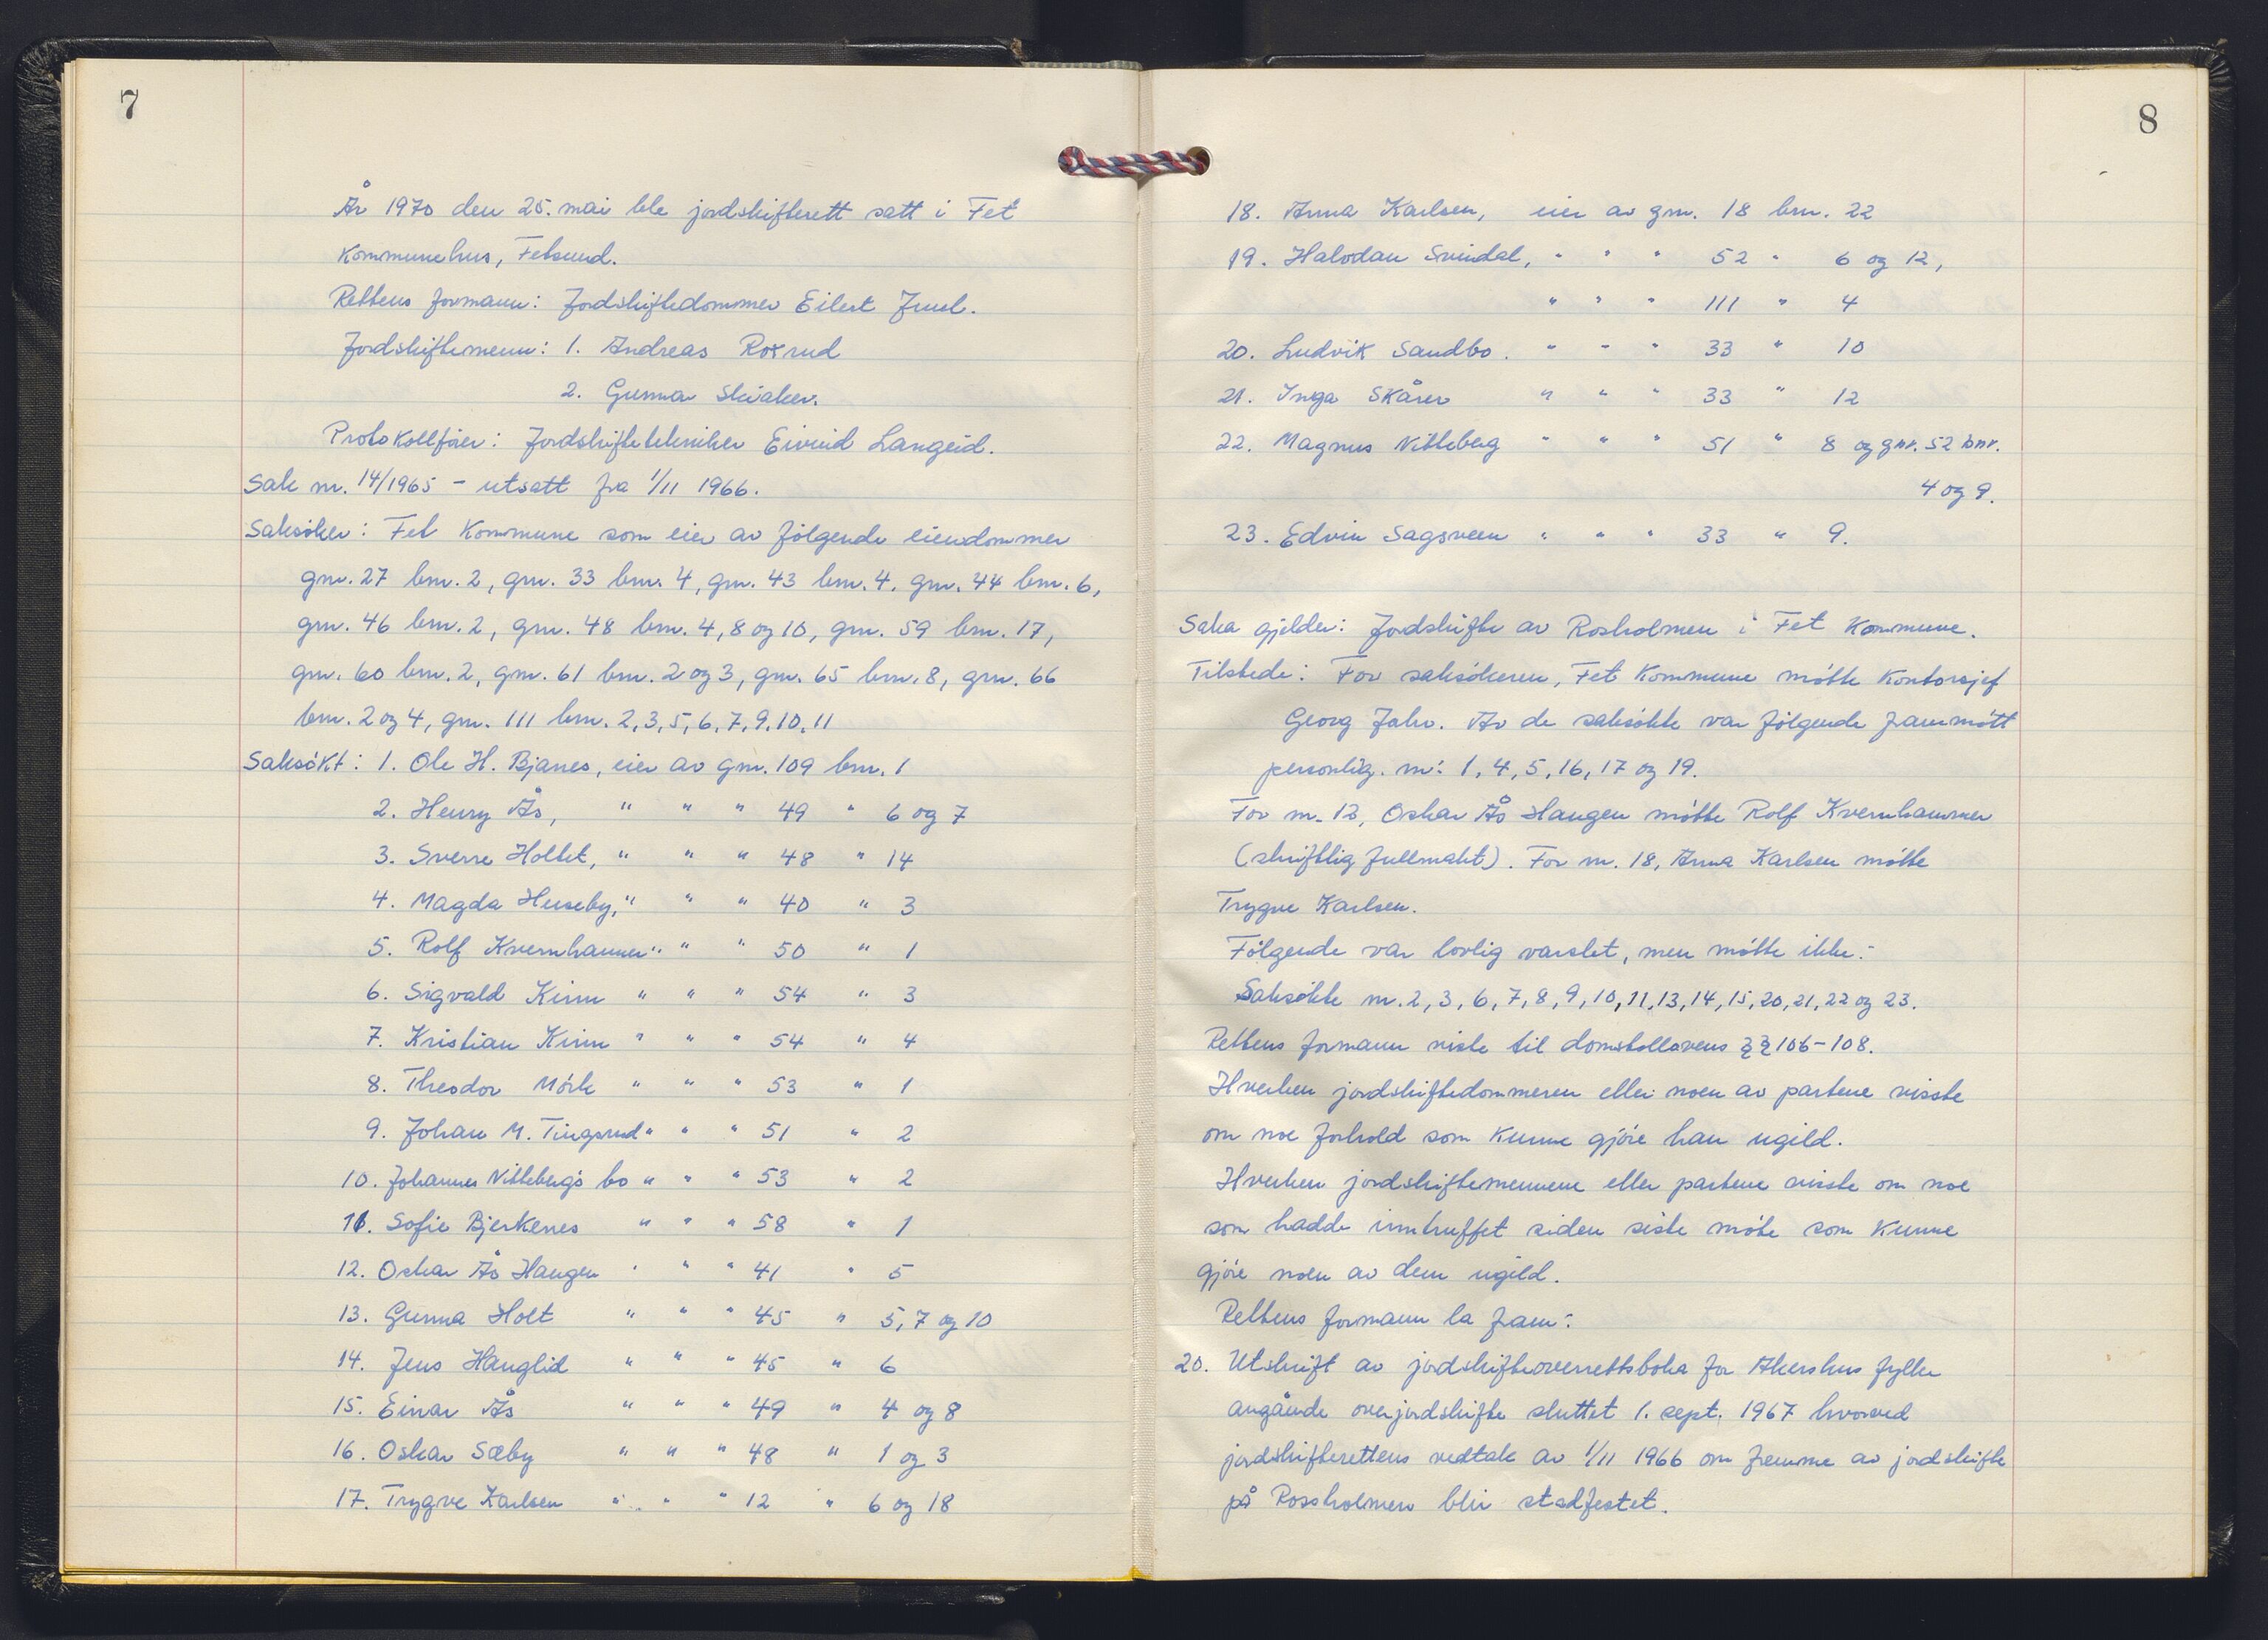 7
År 1970 den 25. mai ble jordskifterett satt i Fet
kommunehus, Fetsund.
Rettens formann: Jordskiftedommer Eilert Juul.
Jordskiftemenn: 1. Andreas Roxrud
2. Gunnar Skiaker.
Protokollfører: Jordskiftetekniker Eivind Langeid.
Sak nr. 14/1965 - utsatt fra 1/11 1966.
Saksøker: Fet kommune som eier av følgende eiendommer
gnr. 27 bnr. 2, gnr. 33 bnr. 4, gnr. 43 bnr. 4. gnr. 44 bnr. 6,
gnr. 46 bnr. 2, gnr. 48 bnr. 4, 8 og 10, gnr. 59 bnr. 17,
gnr. 60 bnr. 2, gnr. 61 bnr. 2 og 3, gnr. 65 bnr. 8, gnr. 66
bnr. 2 og 4, gnr. 111 bnr. 2, 3, 5, 6, 7, 9, 10, 11
Saksøkt: 1. Ole H. Bjanes, eier av gnr. 109 bnr. 1
2. Henry Ås, " " " 49 " 6 og 7
3. Sverre Holtet, " " " 48 " 14
4. Magda Huseby, " " " 40 " 3
5. Rolf Kvernhammer " " " 50 " 1
6. Sigvald Kinn " " " 54 " 3
7. Kristian Kinn " " " 54 " 4
8. Theodor Mörk " " " 53 " 1
9. Johan M. Tingsrud " " " 51 " 2
10. Johannes Nitteberg's bo " " " 53 " 2
11. Sofie Bjerkenes " " " 58 " 1
12. Oskar Ås Haugen " " " 41 " 5
13. Gunnar Holt " " " 45 " 5, 7 og 10
14. Jens Hauglid " " " 45 " 6
15. Einar Ås " " " 49 " 4 og 8
16. Oskar Sæby " " " 48 " 1 og 3
17. Trygve Karlsen " " " 12 " 6 og 18
8
18. Anna Karlsen, eier av gnr. 18 bnr. 22
19. Halvdan Svindal, " " " 52 " 6 og 12,
" " " 111 " 4
20. Ludvik Sandbo. " " " 33 " 10
21. Inga Skårer " " " 33 " 12
22. Magnus Nitteberg " " " 51 " 8 og gnr. 52 bnr.
4 og 9.
23. Edvin Sagsveen " " " 33 " 9.
Saka gjelder: Jordskifte av Rosholmen i Fet kommune.
Tilstede: For saksøkeren, Fet kommune møtte kontorsjef
Georg Jahr. Av de saksøkte var følgende frammøtt
personlig. nr: 1, 4, 5, 16, 17 og 19.
For nr. 12, Oskar Ås Haugen møtte Rolf Kvernhammer
(skriftlig fullmakt). For nr. 18, Anna Karlsen møtte
Trygve Karlsen.
Følgende var lovlig varslet, men møtte ikke:
Saksøkte nr. 2, 3, 6, 7, 8, 9, 10, 11, 13, 14, 15, 20, 21, 22 og 23.
Rettens formann viste til domstollovens §§ 106-108.
Hverken jordskiftedommeren eller noen av partene visste
om noe forhold som kunne gjøre han ugild.
Hverken jordskiftemennene eller partene visste om noe
som hadde inntruffet siden siste møte som kunne
gjøre noen av dem ugild.
Rettens formann la fram:
20. Utskrift av jordskifteoverrettsboka for Akershus fylke
angående overjordskifte sluttet 1. sept. 1967 hvorved
jordskifterettens vedtak av 1/11 1966 om fremme av jordskifte
på Rossholmen blir stadfestet.